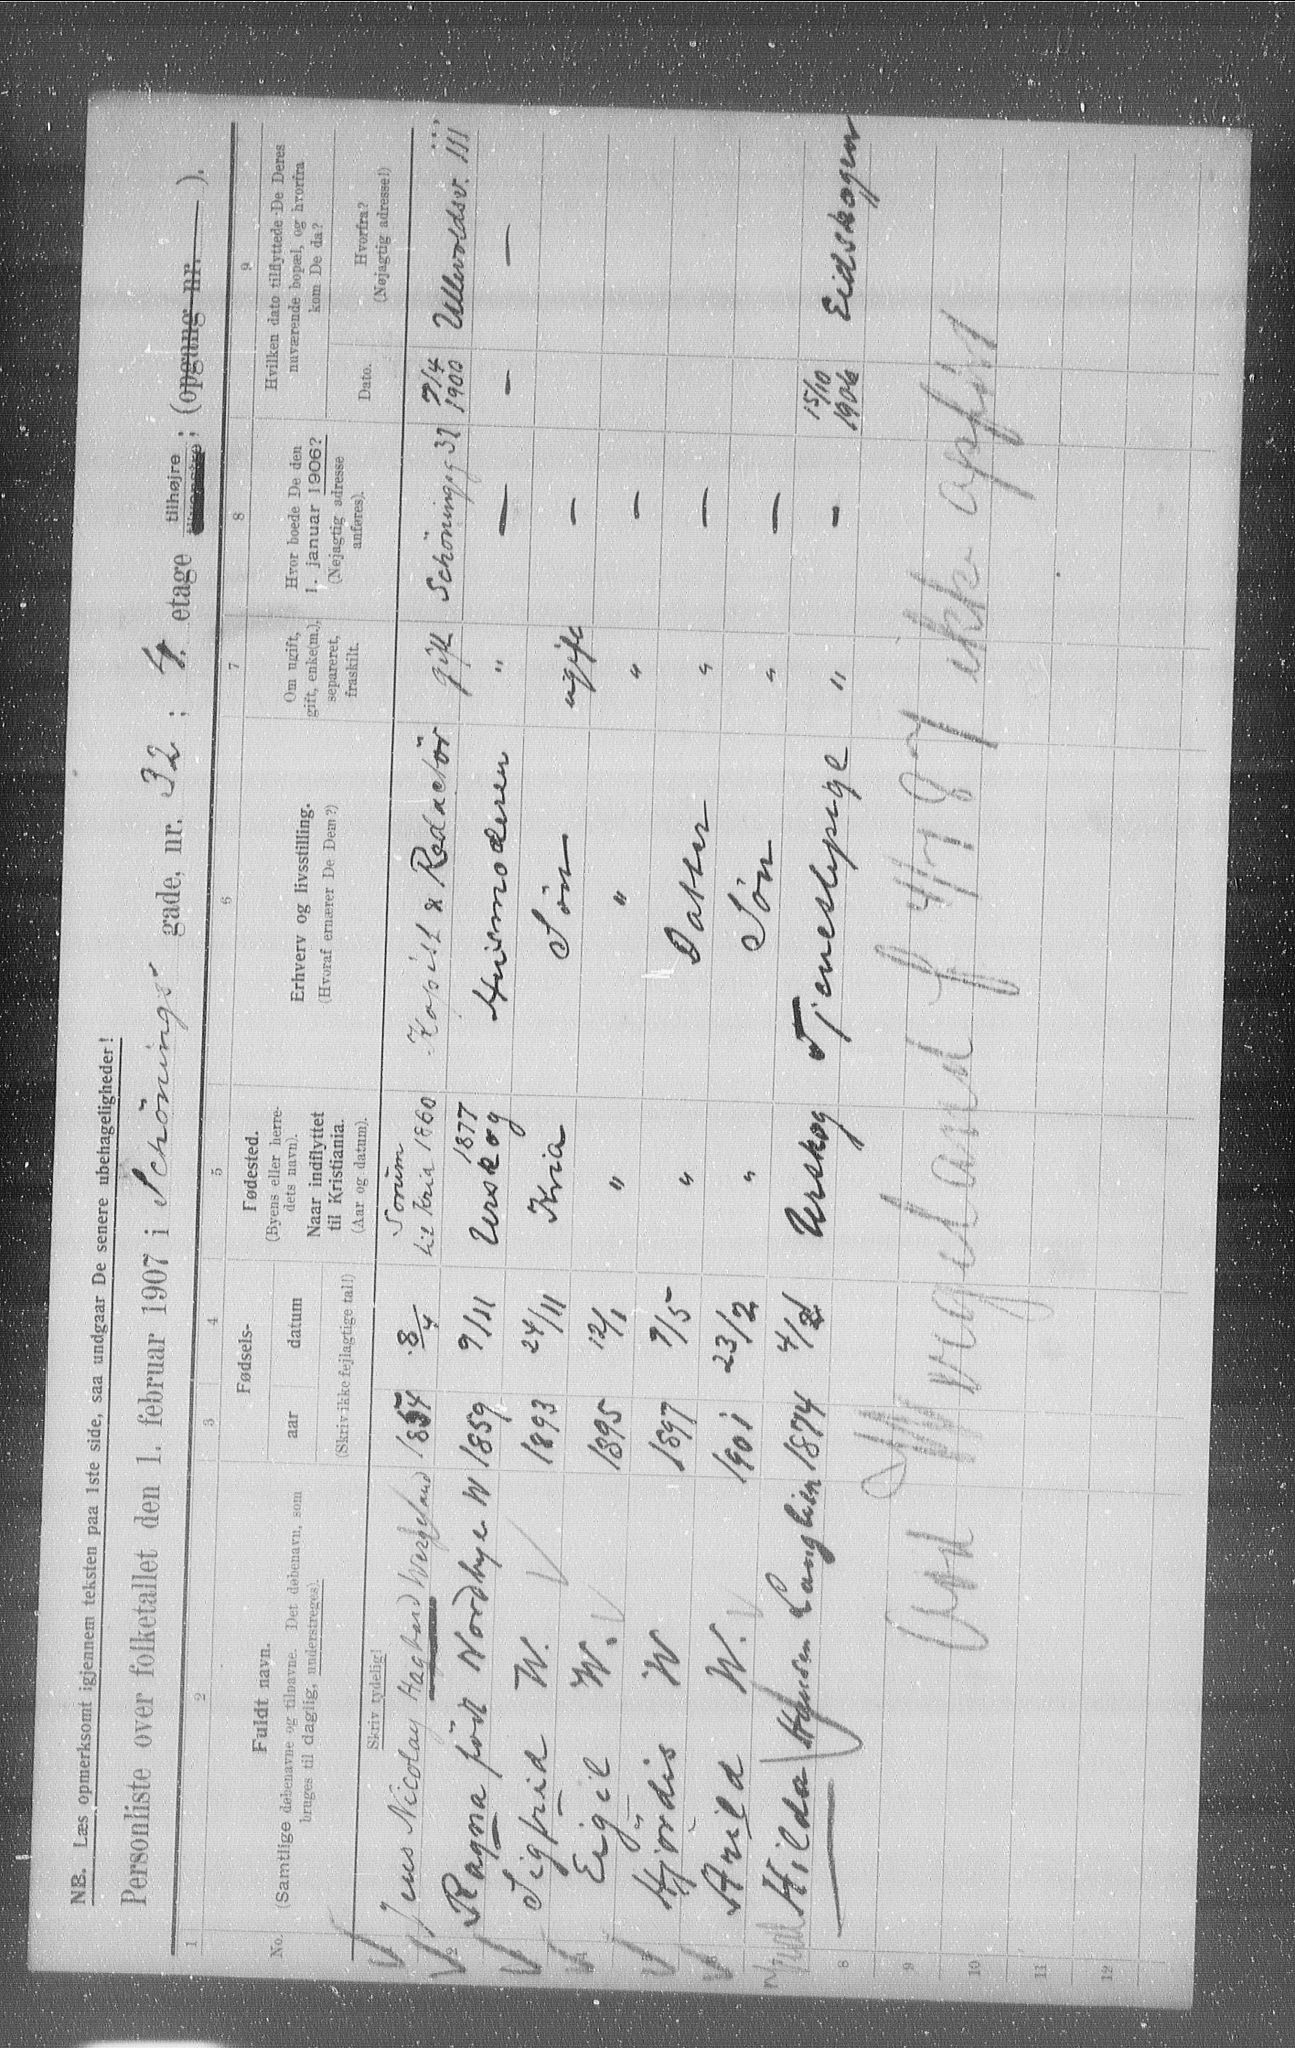 NB. Læs opmerksomt igjennem teksten paa 1ste side, saa undgaar De senere ubehageligheder!
Personliste over folketallet den 1. februar 1907 i Schönings gade, nr. 32; 4. etage tilhøjre tilvenstre; (opgang nr. ).
1 2 3 4 5 6 7 8 9
No. Fuldt navn. (Samtlige døbenavne og tilnavne. Det døbenavn, som bruges til daglig, understreges). Fødsels- aar datum Fødested. (Byens eller herredets navn). Naar indflyttet til Kristiania. (Aar og datum). Erhverv og livsstilling. (Hvoraf ernærer De Dem?) Om ugift, gift, enke(m.), separeret, fraskilt. Hvor boede De den 1. januar 1906? (Nøjagtig adresse anføres). Hvilken dato tilflyttede De Deres nuværende bopæl, og hvorfra kom De da?
Skriv tydelig! (Skriv ikke fejlagtige tal!) Dato. Hvorfra? (Nøjagtig adresse!)
Jens Nicolay Hagbard Wergeland 1854 8/4 Sorum til Kria 1860 Kopist & Redactör gift Schöningsg 32 7/4 1900 Ullevoldsv. 111
2 Ragna född Nordbye W 1859 9/11 1877 Urskog Husmoderen " — — —
Sigfrid W. 1893 24/11 Kria Sön ugift —
4 Eigil W. 1895 12/1 " " " —
Hjördis W 1897 7/5 " Datter " —
6 Arild W. 1901 23/2 " Sön " —
Hilda Hansen Langlien 1874 4/2 Urskog Tjenestepige " — 15/10 1906 Eidskogen
8
9
10 Wergeland f 4/7 87 ikke opført
11
12